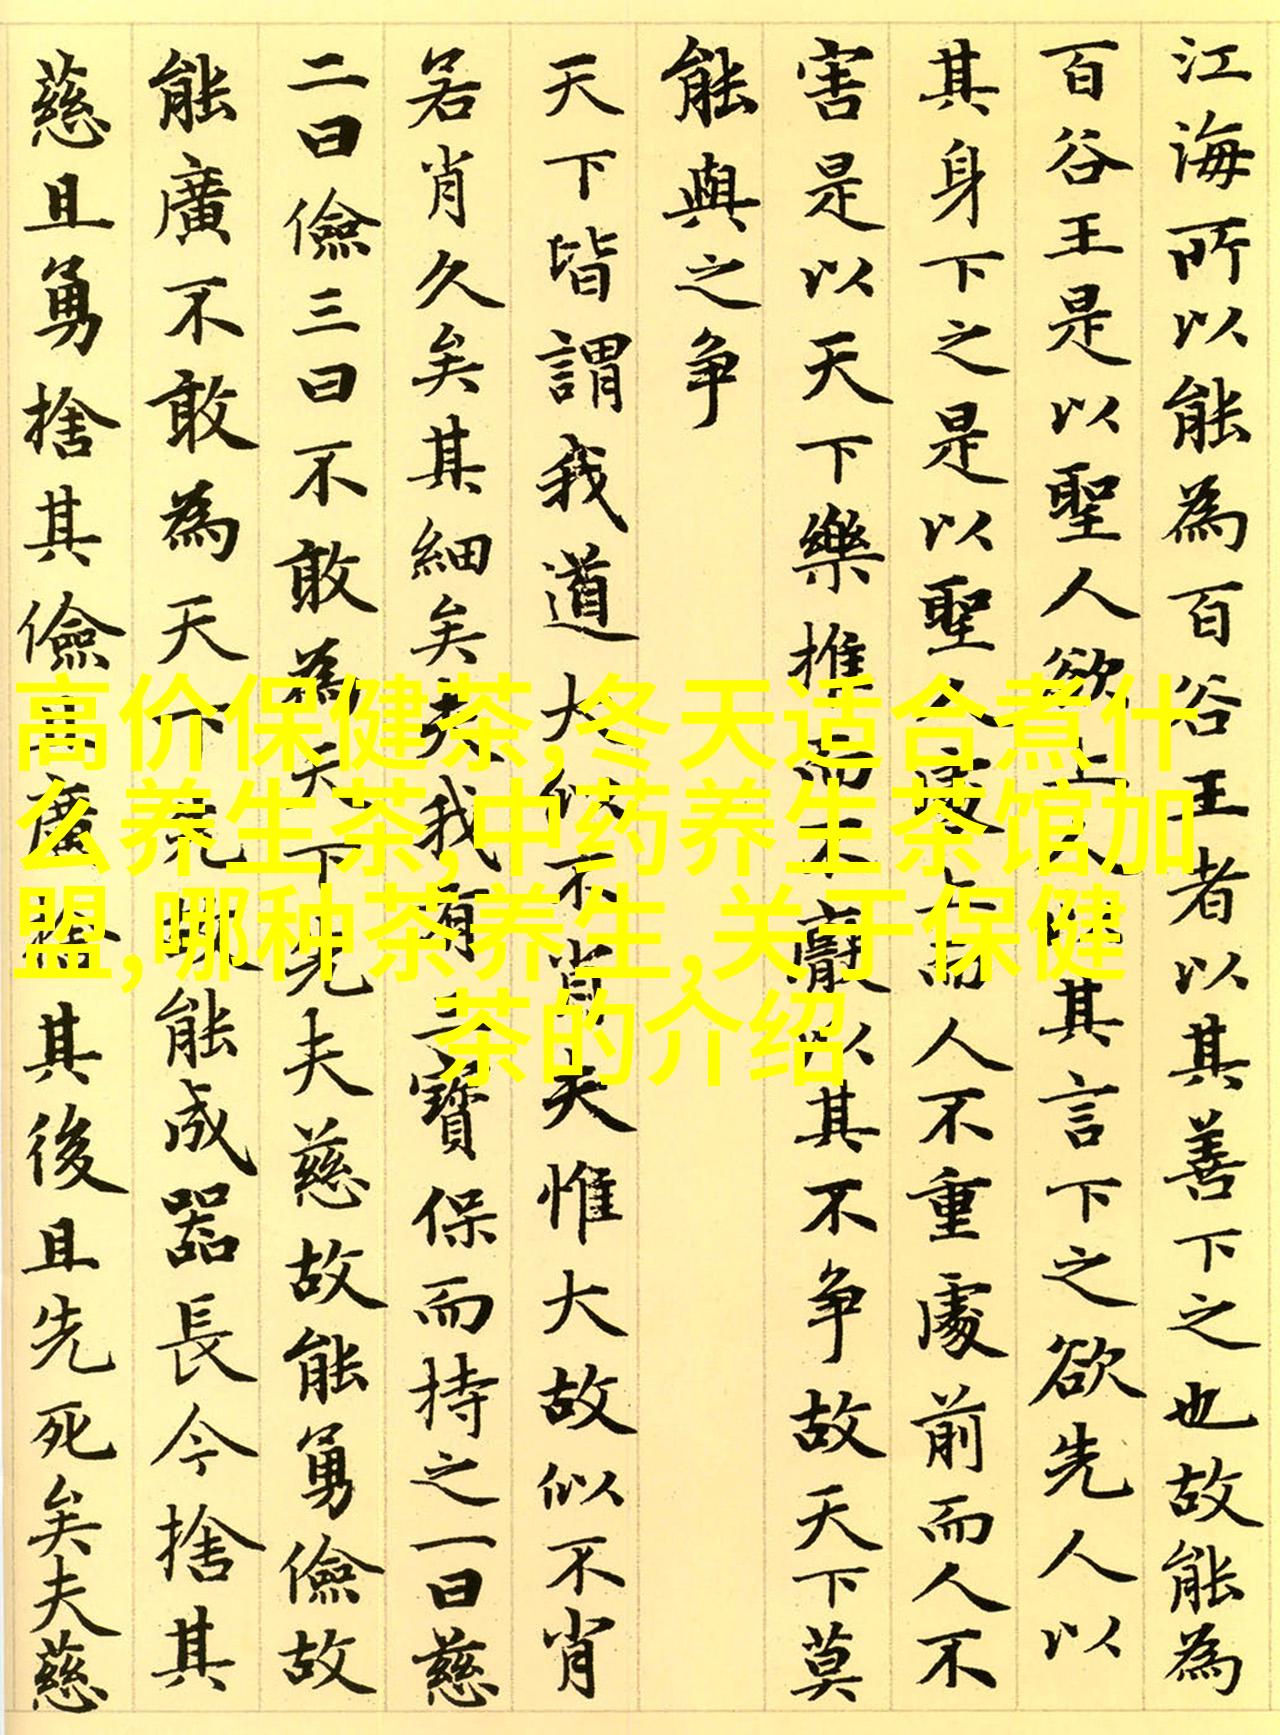 江海所以能為百谷王者以其善下之也故能為
百谷王是以聖人欲上人以其言下之欲先人以
其身下之是以聖人處上而人不重處前而人不
害是以天下樂推而不厭以其不争故天下莫
能與之争
天下皆謂我道大似不肖夫惟大故似不肖
若肖久矣其細矣夫我有三寶保而持之一曰慈
二曰儉三曰不敢為天下先夫慈故能勇儉故
能廣不敢為天下先故能成器長今捨其
慈且勇捨其儉且廣捨其後且先死矣夫慈
高价保健茶,冬天适合煮什
么养生茶,中药养生茶馆加
盟,哪种茶养生,关于保健
茶的介绍